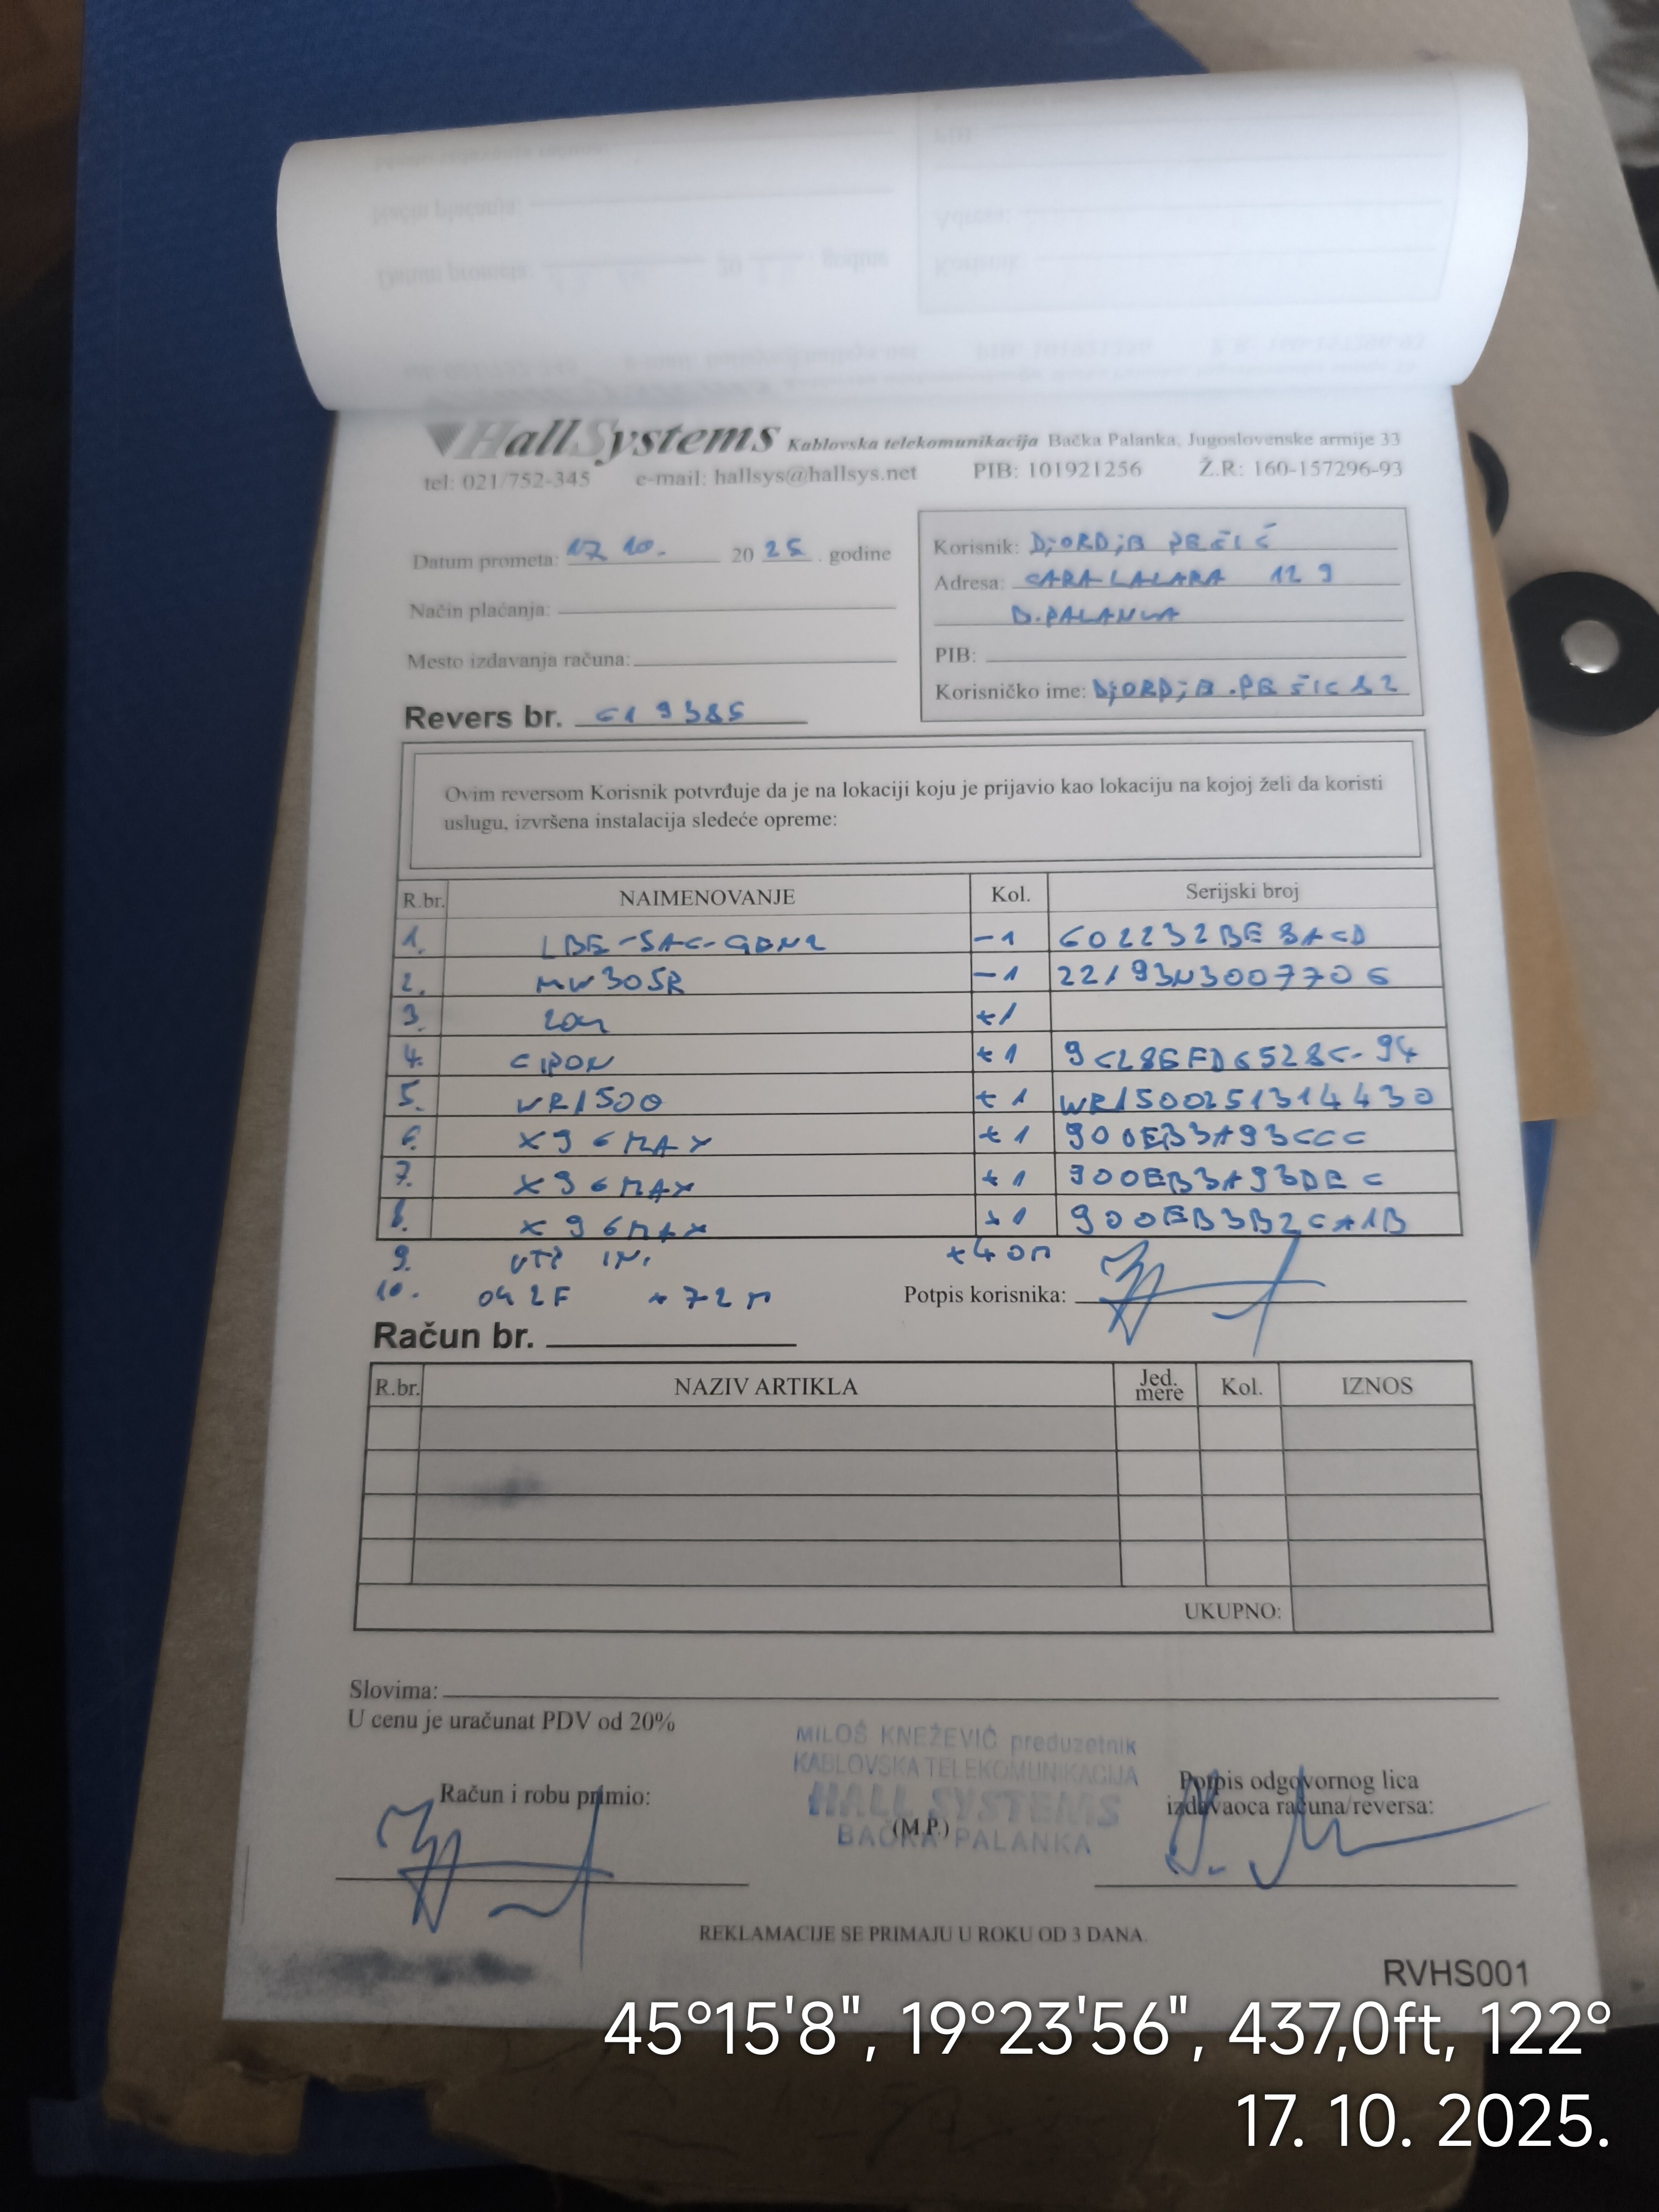 HallSystems Kablovska telekomunikacija Bačka Palanka, Jugoslovenske armije 33
tel: 021/752-345 e-mail: hallsys@hallsys.net PIB: 101921256 Ž.R: 160-157296-93
Datum prometa: 17 10. 20 25 . godine
Način plaćanja:
Mesto izdavanja računa:
Revers br.
Korisnik:
Adresa: CARA LAZARA 129
B.PALANKA
PIB:
Korisničko ime:
Ovim reversom Korisnik potvrđuje da je na lokaciji koju je prijavio kao lokaciju na kojoj želi da koristi
uslugu, izvršena instalacija sledeće opreme:
R.br. NAIMENOVANJE Kol. Serijski broj
1. LBE-5AC-GEN2 -1
2. MW305R -1
3. +1
4. +1
5. WR1500 +1 WR1500251314430
6. X96MAX +1 900EB3A93CCC
7. X96MAX +1 900EB3A93DEC
8. X96MAX +1 900EB3B2CA1B
9. UTP +40m
10. 2F +72m
Potpis korisnika:
Račun br.
R.br. NAZIV ARTIKLA Jed. mere Kol. IZNOS
UKUPNO:
Slovima:
U cenu je uračunat PDV od 20%
MILOŠ KNEŽEVIĆ preduzetnik
KABLOVSKA TELEKOMUNIKACIJA
HALL SYSTEMS
BAČKA PALANKA
Račun i robu primio:
(M.P.)
Potpis odgovornog lica
izdavaoca računa/reversa:
REKLAMACIJE SE PRIMAJU U ROKU OD 3 DANA.
RVHS001
45°15'8", 19°23'56", 437,0ft, 122°
17. 10. 2025.